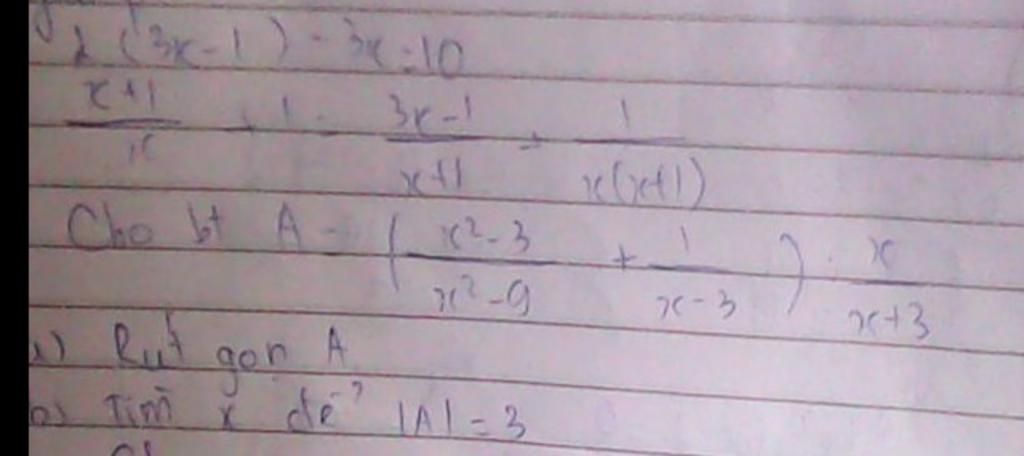 2(3x-1) - 3x = 10
\frac{x+1}{x} + 1 = \frac{3x-1}{x+1} + \frac{1}{x(x+1)}
Cho bt A = \left( \frac{x^2-3}{x^2-9} + \frac{1}{x-3} \right) \cdot \frac{x}{x+3}
a) Rút gọn A
b) Tìm x để |A| = 3